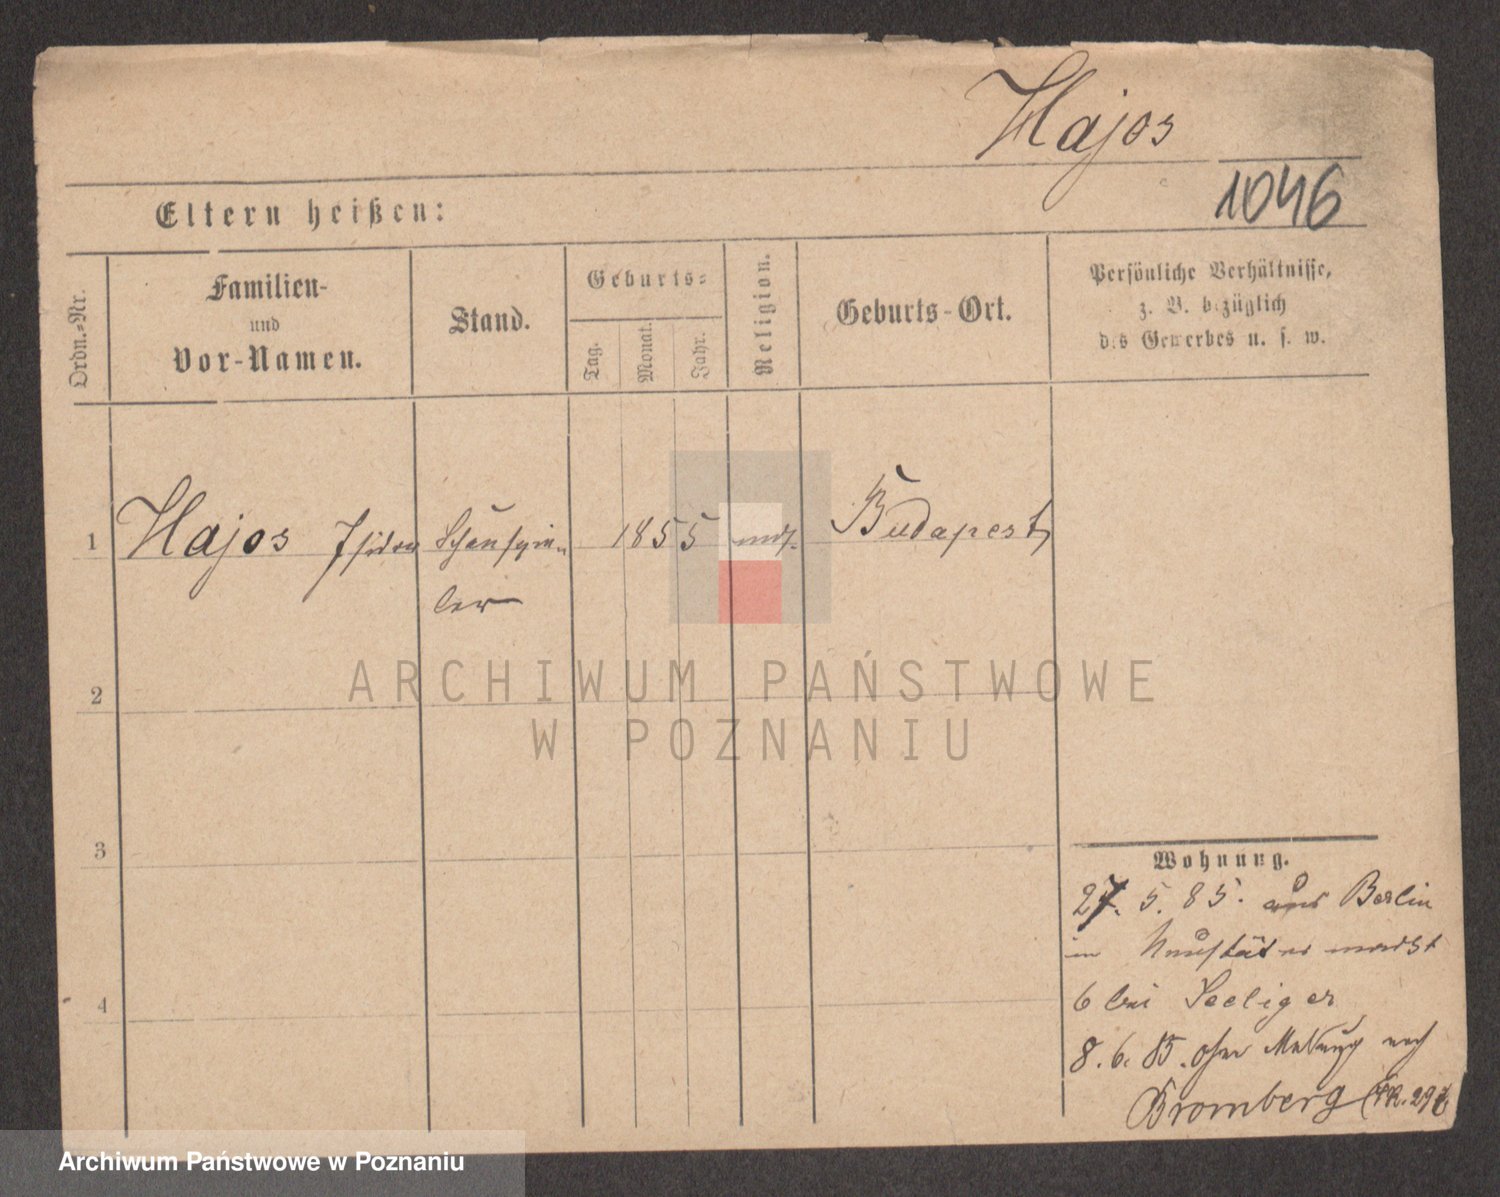 Hajos
1046
Eltern heißen:
Ordn.=Nr.
Familien-
und
Vor-Namen.
Stand.
Geburts=
Tag.
Monat.
Jahr.
Religion.
Geburts-Ort.
Persönliche Verhältnisse,
z. B. bezüglich
des Gewerbes u. s. w.
1 Hajos Isidor Schauspie- 1855 mos. Budapest
ler
2
3
4
Wohnung.
27. 5. 85. aus Berlin
in Neustädter markt
6 bei Seeliger
8. 6. 85. ohne Meldung nach
Bromberg
ARCHIWUM PAŃSTWOWE
W POZNANIU
Archiwum Państwowe w Poznaniu